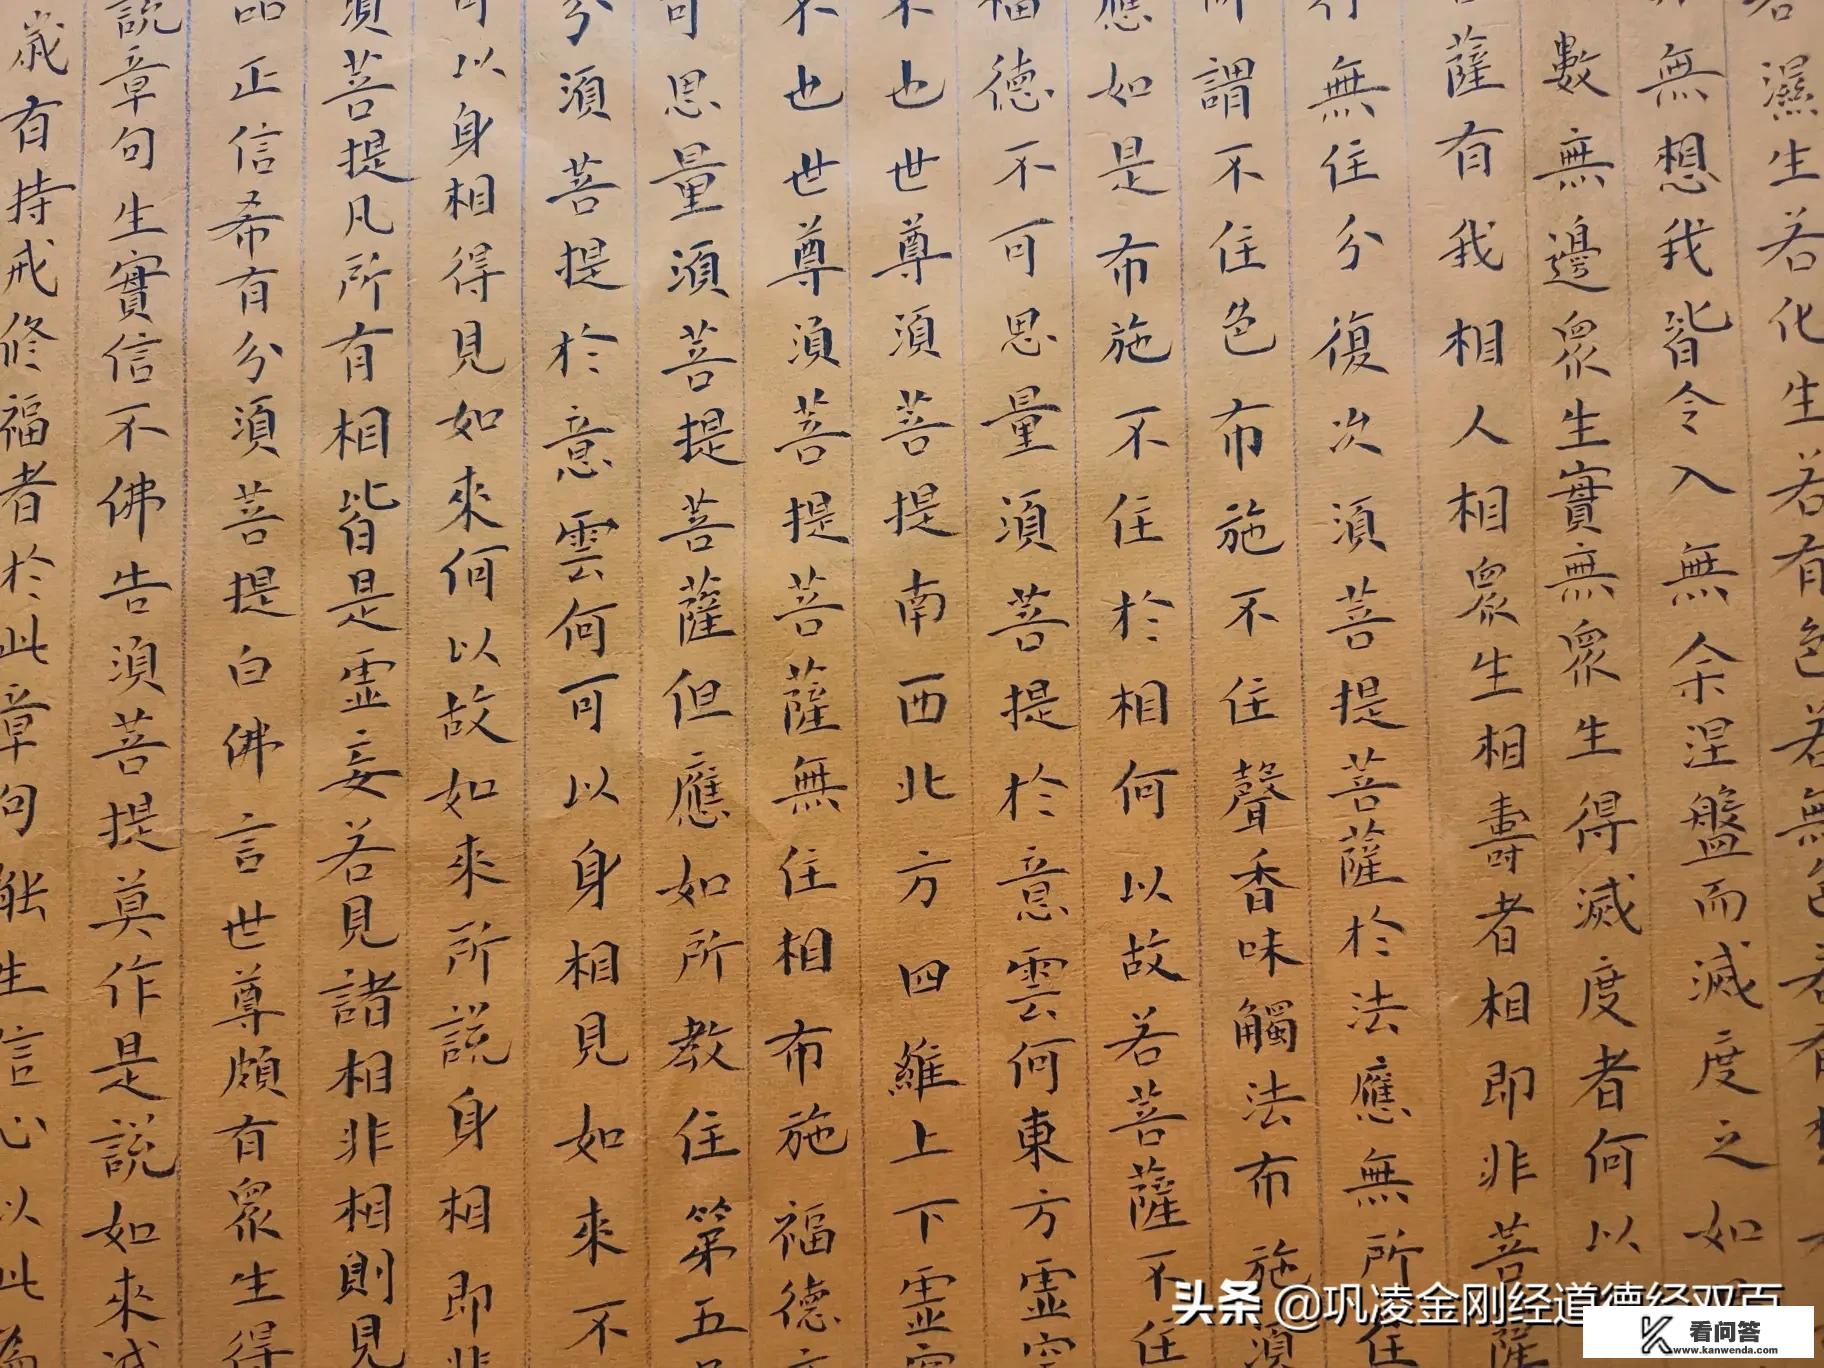 若濕生若化生若有色若無色若有想
無想我皆令入無余涅盤而滅度之如
數無邊眾生實無眾生得滅度者何以
薩有我相人相眾生相壽者相即非菩薩
行無住分復次須菩提菩薩於法應無所住
所謂不住色布施不住聲香味觸法布施須
應如是布施不住於相何以故若菩薩不住
福德不可思量須菩提於意雲何東方虛空
不也世尊須菩提南西北方四維上下虛空
不也世尊須菩提菩薩無住相布施福德
可思量須菩提菩薩但應如所教住第五
分須菩提於意雲何可以身相見如來不
可以身相得見如來何以故如來所說身相即非
須菩提凡所有相皆是虛妄若見諸相非相則見
品正信希有分須菩提白佛言世尊頗有眾生得
說章句生實信不佛告須菩提莫作是說如來滅
歲有持戒修福者於此章句能生信心以此為
头条 @巩凌金刚经道德经双百
看问答
www.kanwenda.com